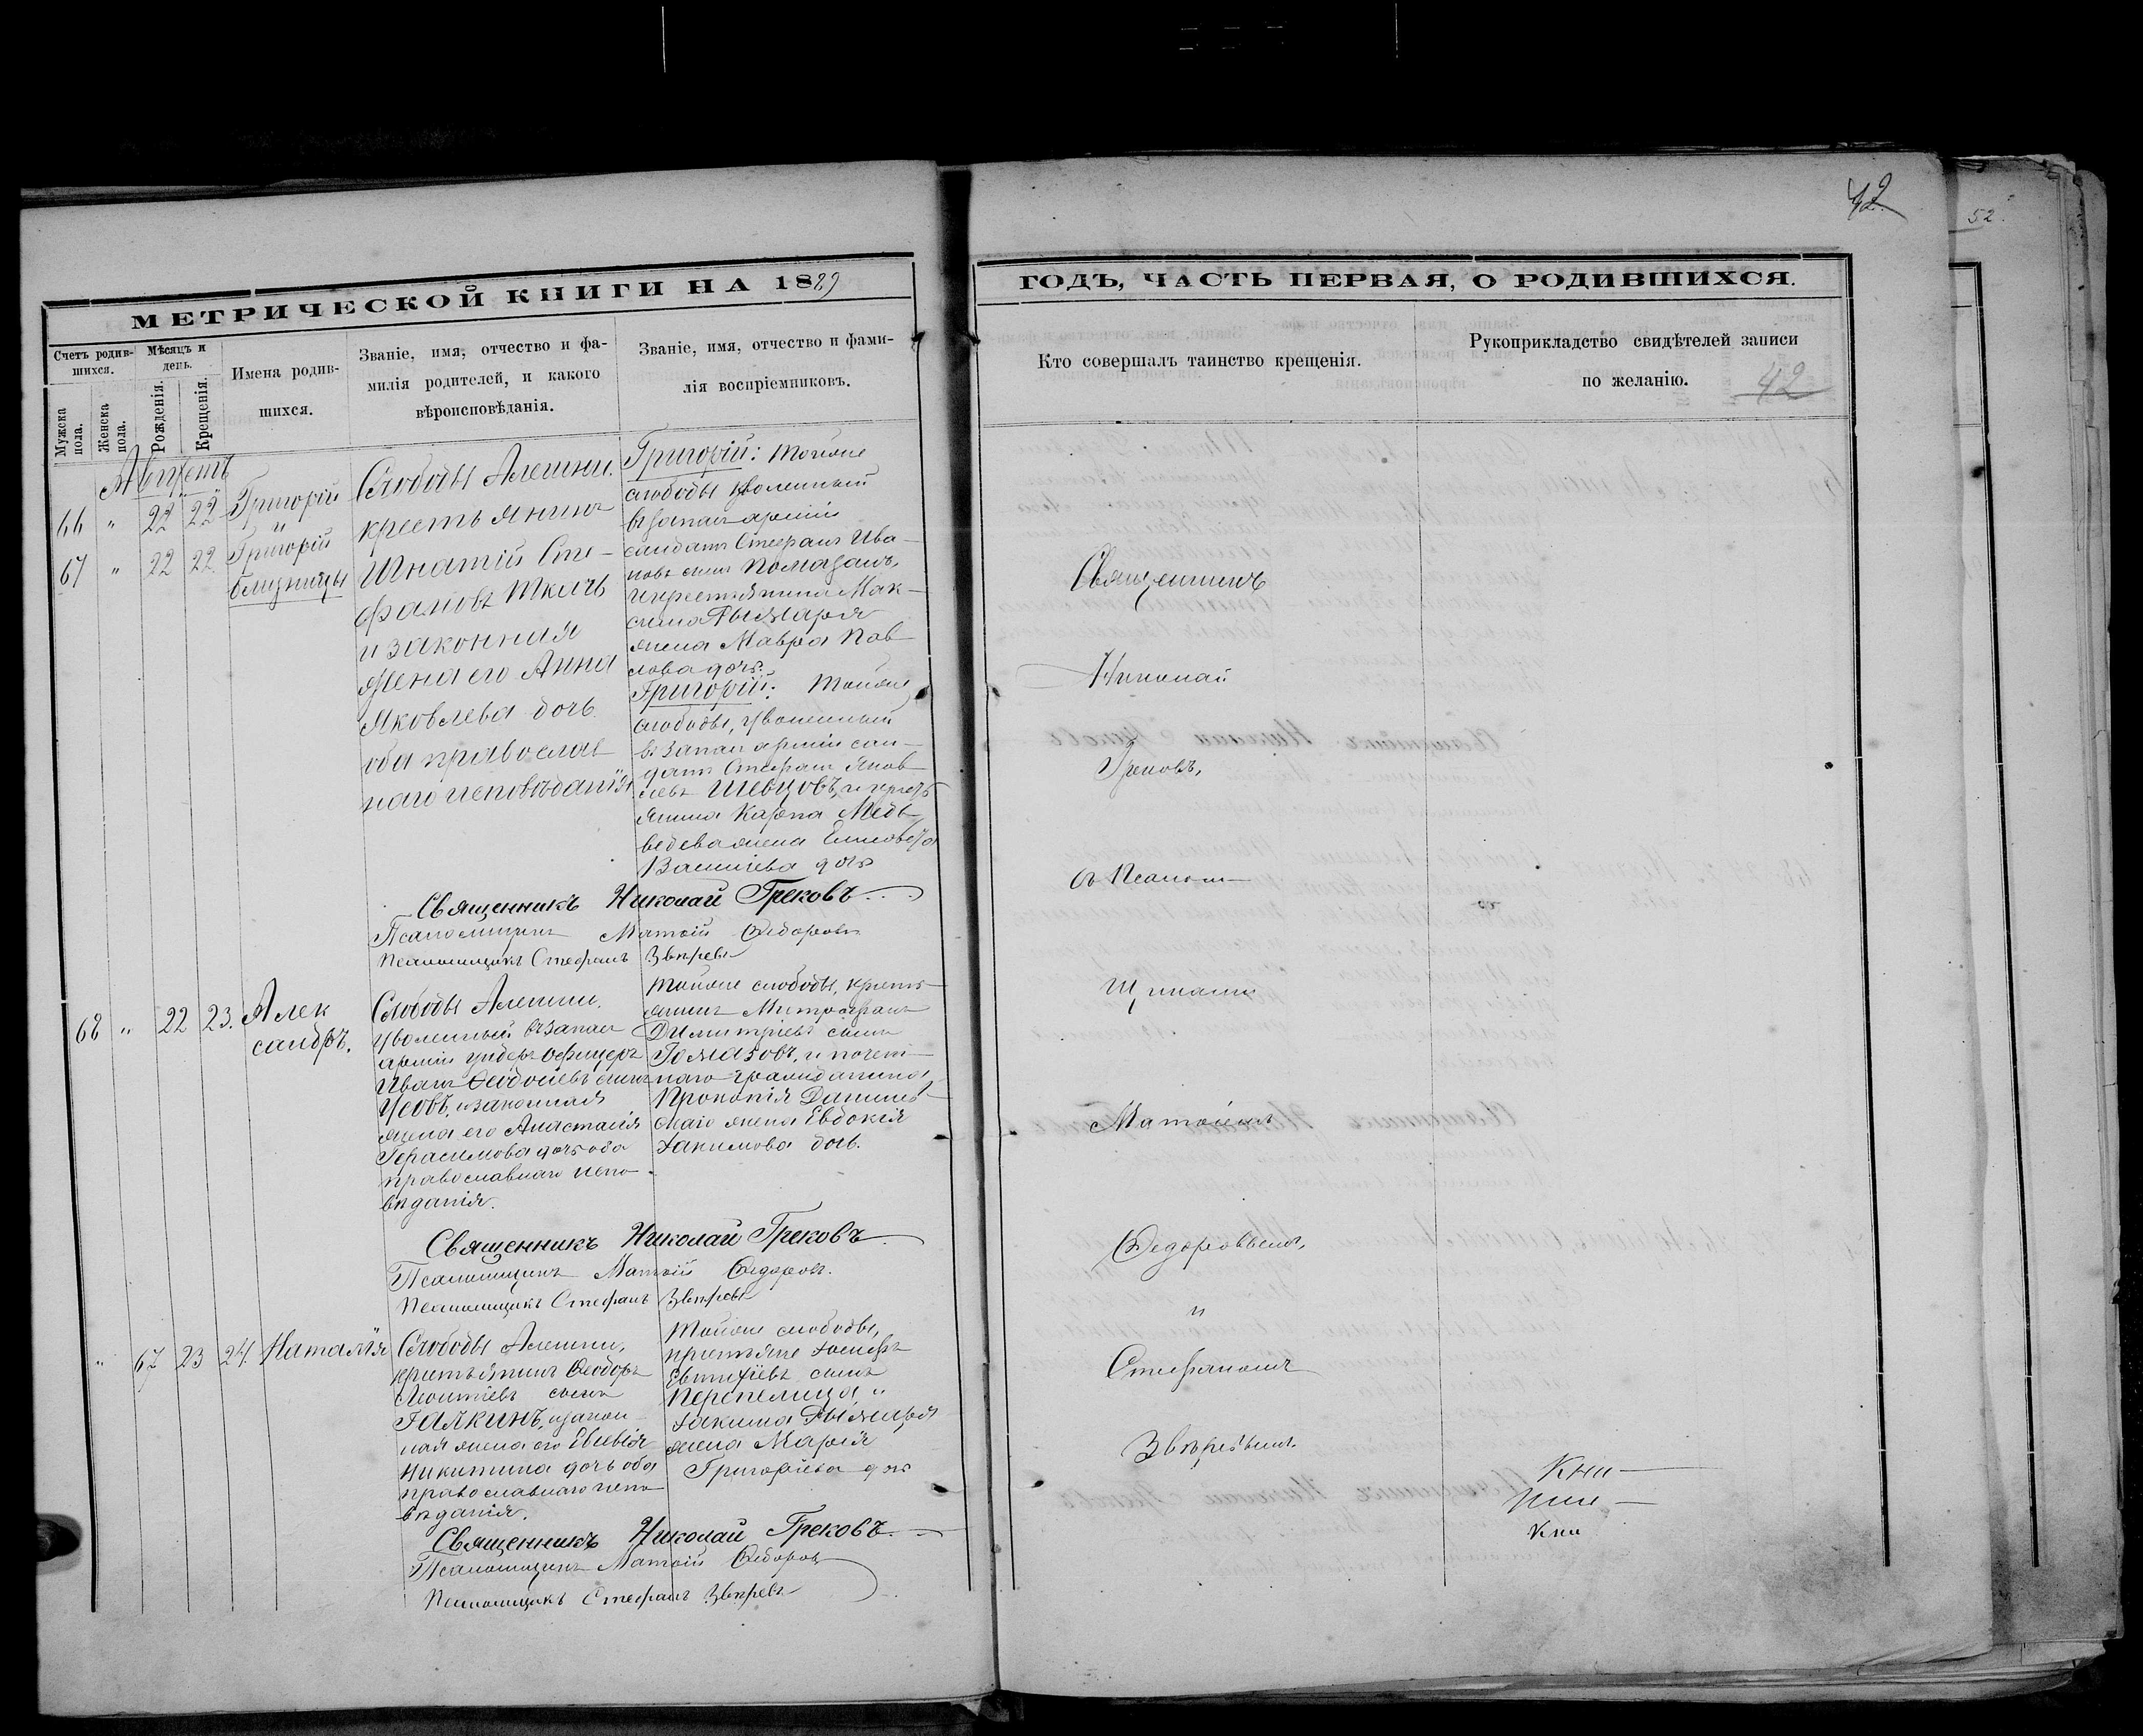 42
52.
МЕТРИЧЕСКОЙ КНИГИ НА 1889
ГОДЪ, ЧАСТЬ ПЕРВАЯ, О РОДИВШИХСЯ.
Счетъ родив-
шихся.
Мужска
пола.
Женска
пола.
Мѣсяцъ и
день.
Рожденія.
Крещенія.
Имена родив-
шихся.
Званіе, имя, отчество и фа-
милія родителей, и какого
вѣроисповѣданія.
Званіе, имя, отчество и фами-
лія воспріемниковъ.
Кто совершалъ таинство крещенія.
Рукоприкладство свидѣтелей записи
по желанію.
42
Августъ
66 " 22 22 Григорій
и
67 " 22 22 Григорій
близницы
Слободы Алешни.
крестьянинъ
Игнатій Сте-
фановъ Ткачъ
и законная
жена его Анна
Яковлева дочь
оба православ
наго исповѣданія
Григорій: тойже
слободы уволенный
въ запас арміи
солдатъ Стефанъ Ива-
новъ сынъ Помазанъ,
и крестьянина Мак-
сима Рымаря
жена Мавра Пав
лова дочь.
Григорій: тойже
слободы, уволенный
въ запас арміи сол-
датъ Стефанъ Яков
левъ Шевцовъ, и кресть
янина Карпа Медь
ведева жена Елисовета
Василіева дочь
Священникъ Николай Грековъ
Псаломщикъ Матѳій Ѳедоровъ
Псаломщикъ Стефанъ Звѣревъ
68 " 22 23. Алек
сандръ.
Слободы Алешни.
уволенный въ запас
арміи унтеръ офицеръ
Иванъ сынъ
и законная
жена его Анастасія
Герасимова дочь оба
православнаго испо-
вѣданія.
тойже слободы, кресть
янинъ Митрофанъ
Димитріевъ сынъ
и почет-
наго гражданина
Прокопія
жена Евдокія
Іакимова дочь.
Священникъ Николай Грековъ
Псаломщикъ Матѳій Ѳедоровъ.
Псаломщикъ Стефанъ Звѣревъ
" 67 23 24. Наталія
Слободы Алешни,
крестьянинъ Ѳеодоръ
Леонтіевъ сынъ
Галкинъ, и закон
ная жена его Евѳимія
Никитина дочь оба
православнаго испо
вѣданія.
тойже слободы,
крестьяне Іосифъ
сынъ
Перепелица и
Іакима
жена Марія
Григоріева дочь
Священникъ Николай Грековъ.
Псаломщикъ Матѳій Ѳедоровъ
Псаломщикъ Стефанъ Звѣревъ
Священникъ
Николай
Грековъ,
съ Псалом-
щиками
Матѳіемъ
Ѳедоровымъ,
и
Стефаномъ
Звѣревымъ.